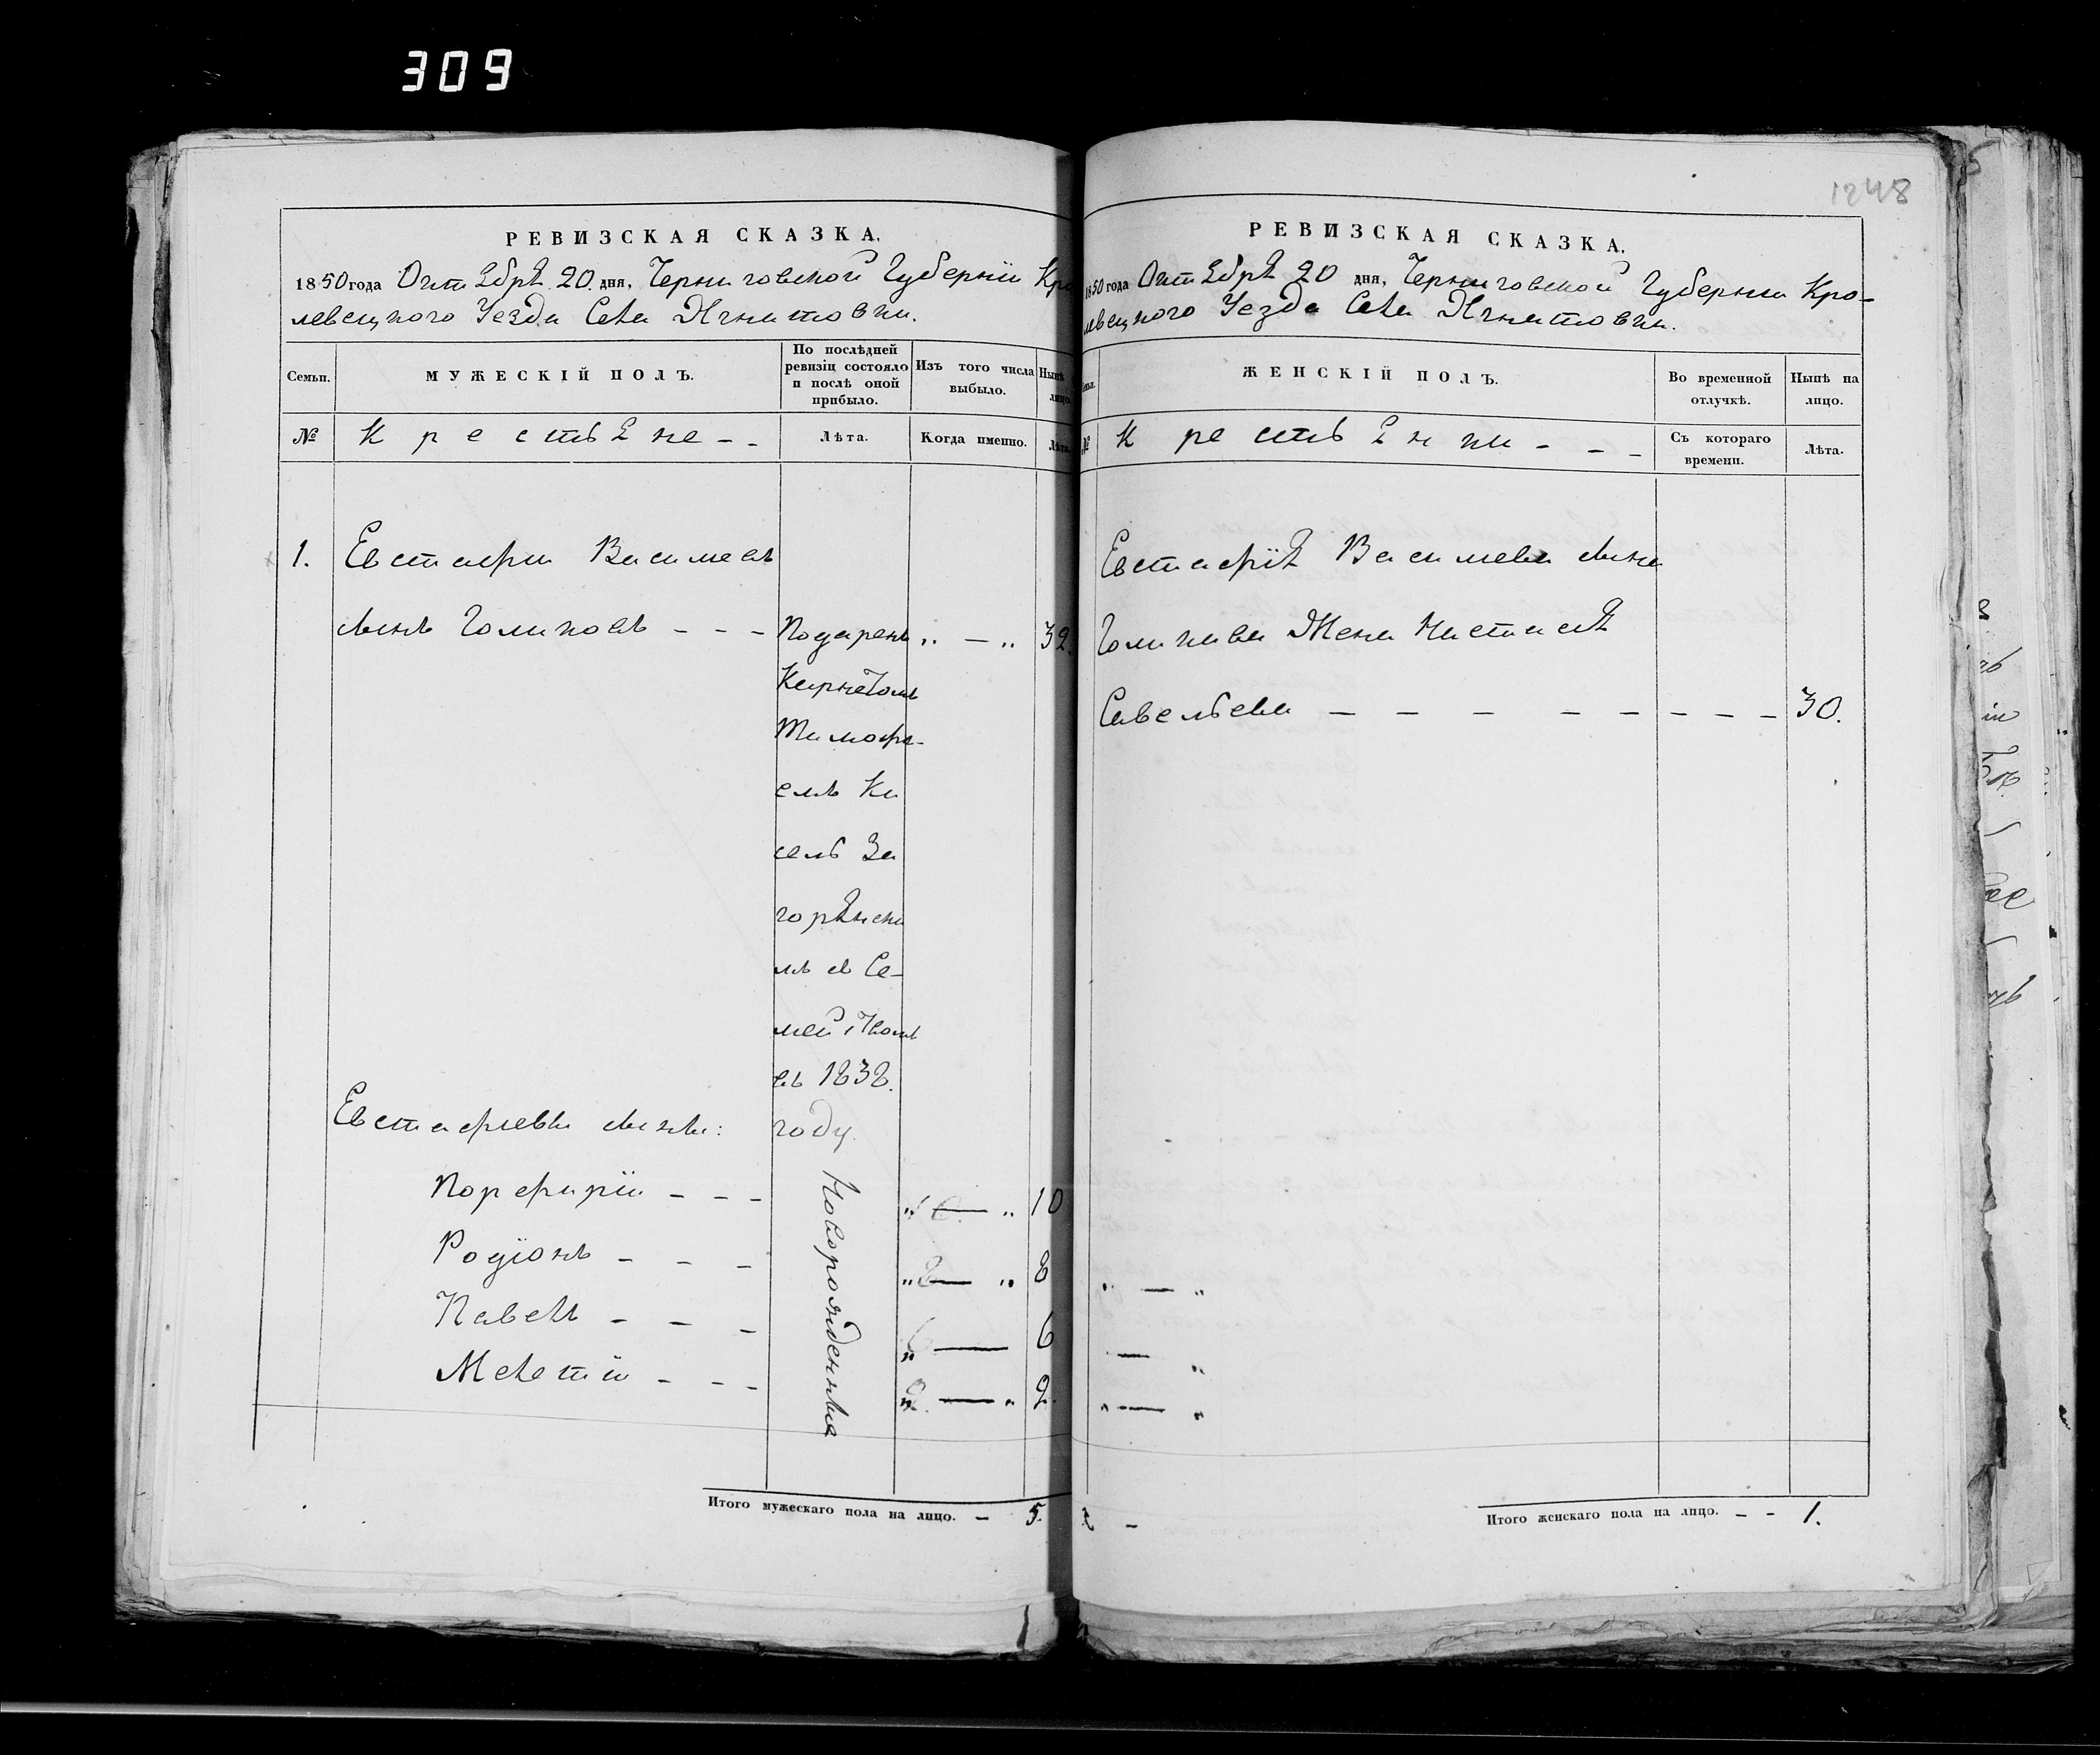 309
1248
РЕВИЗСКАЯ СКАЗКА.
1850 года Октября 20 дня, Черниговской Губернїи Кро
левецкого Уезда Села Игнатовки.
Семьи.
МУЖЕСКІЙ ПОЛЪ.
По послѣдней ревизіи состояло и послѣ оной прибыло.
Изъ того числа выбыло.
Нынѣ лицо.
№
Крестьяне - -
Лѣта.
Когда именно.
Лѣта
1. Евстафий Васильевъ
сынъ Голиковъ - - - Подаренъ „ — „ 32.
Тимофе-
емъ Ки
селъ За
горянски
мъ съ Се-
въ 1838.
Евстафиевы сыны: году.
Порфирїй - - - „ — „ 10
Родїонъ - - - „ — „ 8
Павелъ - - - „ — 6
Мелетїй - - - „ — „ 2.
Новорожденныя
Итого мужескаго пола на лицо. — 5.
РЕВИЗСКАЯ СКАЗКА.
1850 года Октября 20 дня, Черниговской Губернии Кро-
левецкого Уезда Села Игнатовки.
ЖЕНСКІЙ ПОЛЪ.
Во временной отлучкѣ.
Нынѣ на лицо.
№
Крестьянки - - -
Съ котораго времени.
Лѣта.
Евстафїя Васильева сына
Голикова Жена Настасья
Савельева — — — — — — — — 30.
„ — „
— „
„ — „
Итого женскаго пола на лицо. - - 1.